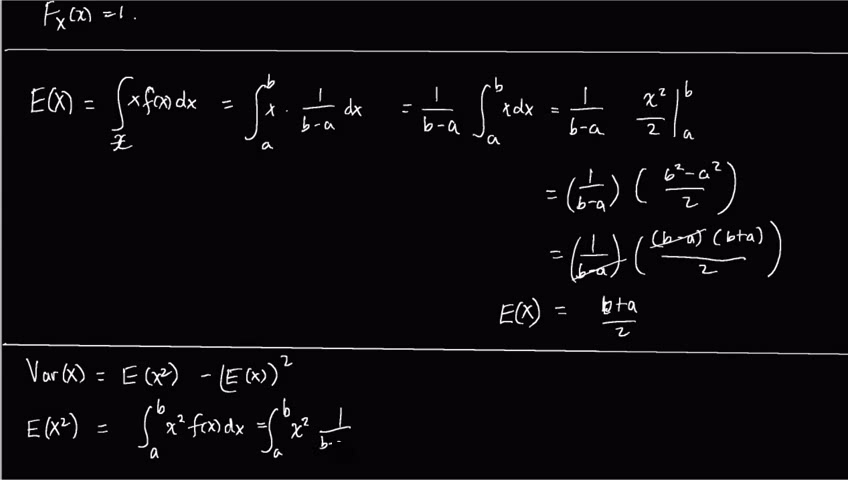 F_X(x) = 1.
E(X) = ∫_𝒳 x f(x) dx = ∫_a^b x · 1/(b-a) dx = 1/(b-a) ∫_a^b x dx = 1/(b-a) x²/2 |_a^b
= (1/(b-a)) ((b²-a²)/2)
= (1/(b-a)) ((b-a)(b+a)/2)
E(X) = (b+a)/2
Var(X) = E(X²) - (E(X))²
E(X²) = ∫_a^b x² f(x) dx = ∫_a^b x² 1/(b-